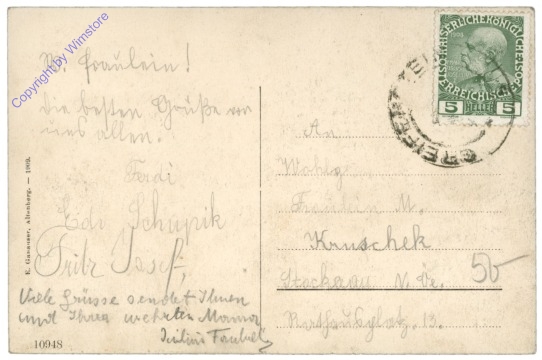 Copyright by Winstore
Fräulein!
Die besten Grüße von
uns allen.
Ferdi
Edi Schupik
Fritz Josef
Viele Grüsse sendet Ihnen
und Ihrer werten Mama
E. Gansoser, Altenberg. — 1909.
10948
KAISERLICHE KÖNIGLICHE
ÖSTERREICHISCHE
5 5
GREIFEN
An
Fräulein M.
Kruschek
Stockerau N. Oe.
Rathausplatz 13.
50